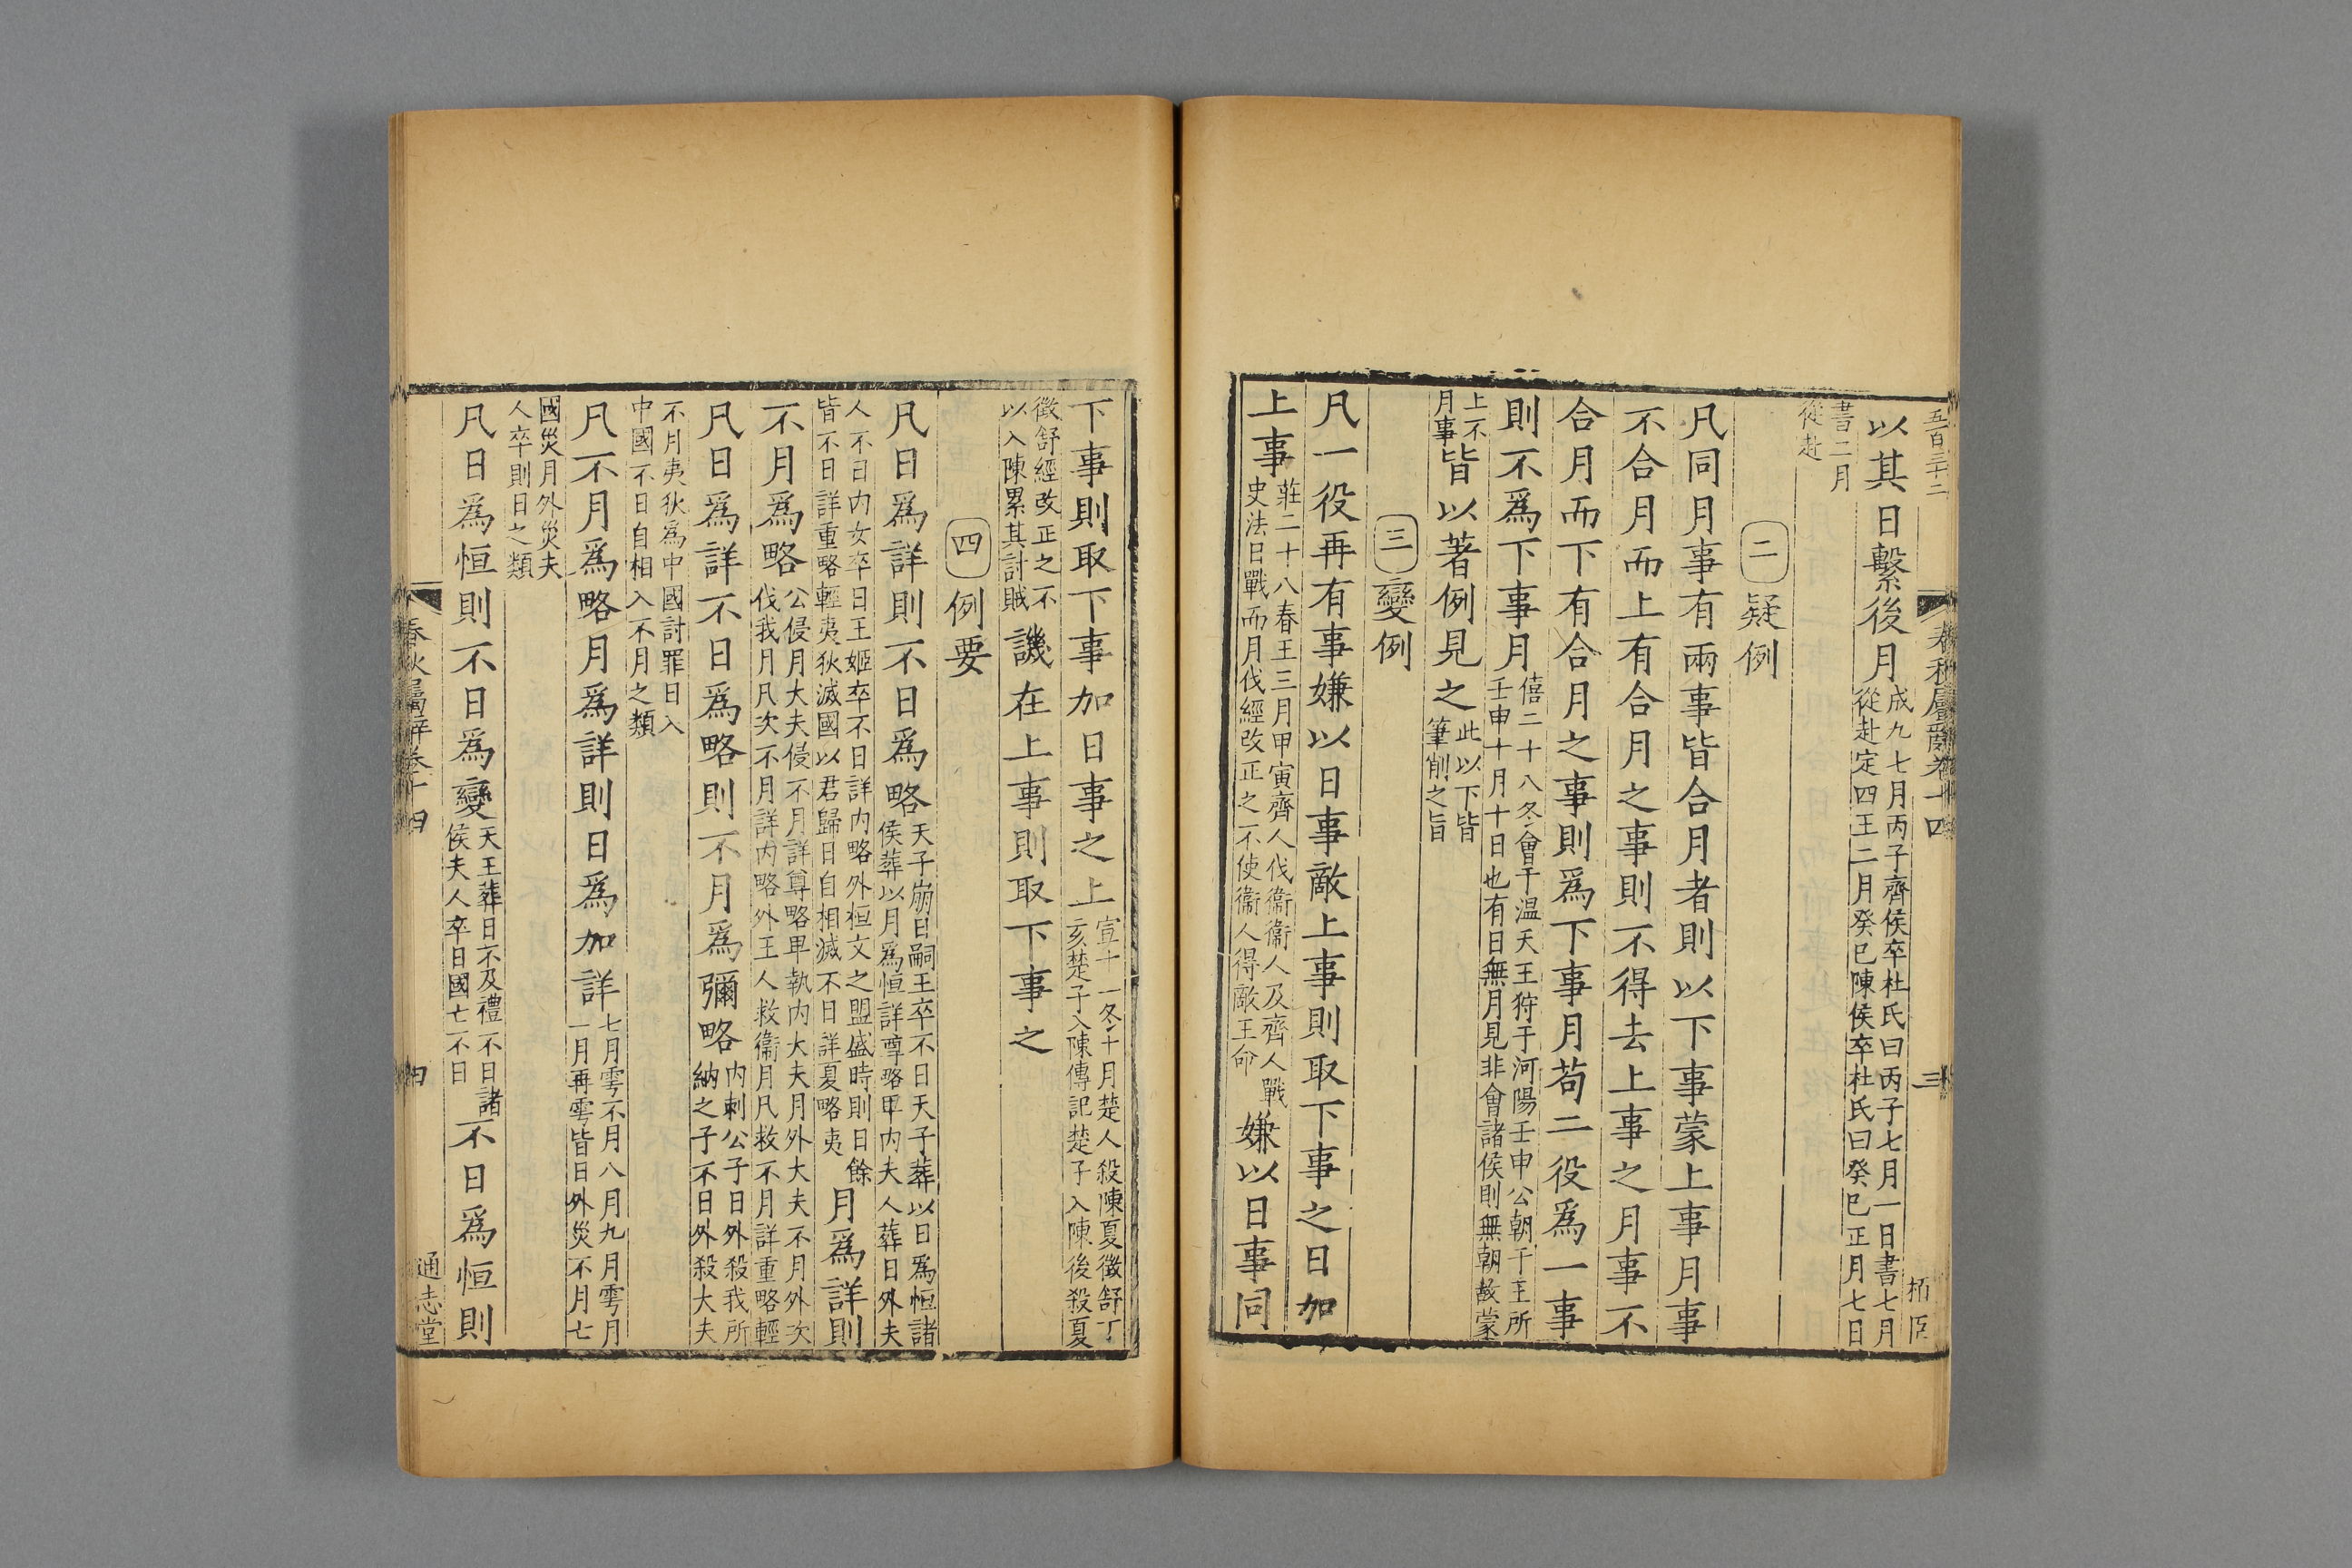 五百三十二
春秋屬辭卷十四
三
以其日繫後月成九七月丙子齊侯卒杜氏曰丙子七月一日書七月從赴定四王二月癸巳陳侯卒杜氏曰癸巳正月七日
書二月從赴
二疑例
凡同月事有兩事皆合月者則以下事蒙上事月事
不合月而上有合月之事則不得去上事之月事不
合月而下有合月之事則爲下事月苟二役爲一事
則不爲下事月僖二十八冬會于温天王狩于河陽壬申公朝于王所壬申十月十日也有日無月見非會諸侯則無朝故蒙
上不月事皆以著例見之此以下皆筆削之旨
三變例
凡一役再有事嫌以日事敵上事則取下事之日加
上事莊二十八春王三月甲寅齊人伐衞衞人及齊人戰史法日戰而月伐經改正之不使衞人得敵王命嫌以日事同
下事則取下事加日事之上宣十一冬十月楚人殺陳夏徵舒丁亥楚子入陳傳記楚子入陳後殺夏
徵舒經改正之不以入陳累其討賊譏在上事則取下事之
四例要
凡日爲詳則不日爲略天子崩日嗣王卒不日天子葬以日爲恒諸侯葬以月爲恒詳尊略卑内夫人葬日外夫
人不日内女卒日王姬卒不日詳内略外桓文之盟盛時則日餘皆不日詳重略輕夷狄滅國以君歸日自相滅不日詳夏略夷月爲詳則
不月爲略公侵月大夫侵不月詳尊略卑執内大夫月外大夫不月外次伐我月凡次不月詳内略外王人救衞月凡救不月詳重略輕
凡日爲詳不日爲略則不月爲彌略内刺公子日外殺我所納之子不日外殺大夫
不月夷狄爲中國討罪日入中國不日自相入不月之類
凡不月爲略月爲詳則日爲加詳七月雩不月八月九月雩月一月再雩皆日外災不月七
國災月外災夫人卒則日之類
凡日爲恒則不日爲變天王葬日不及禮不日諸侯夫人卒日國亡不日不日爲恒則
春秋屬辭卷十四
四
通志堂